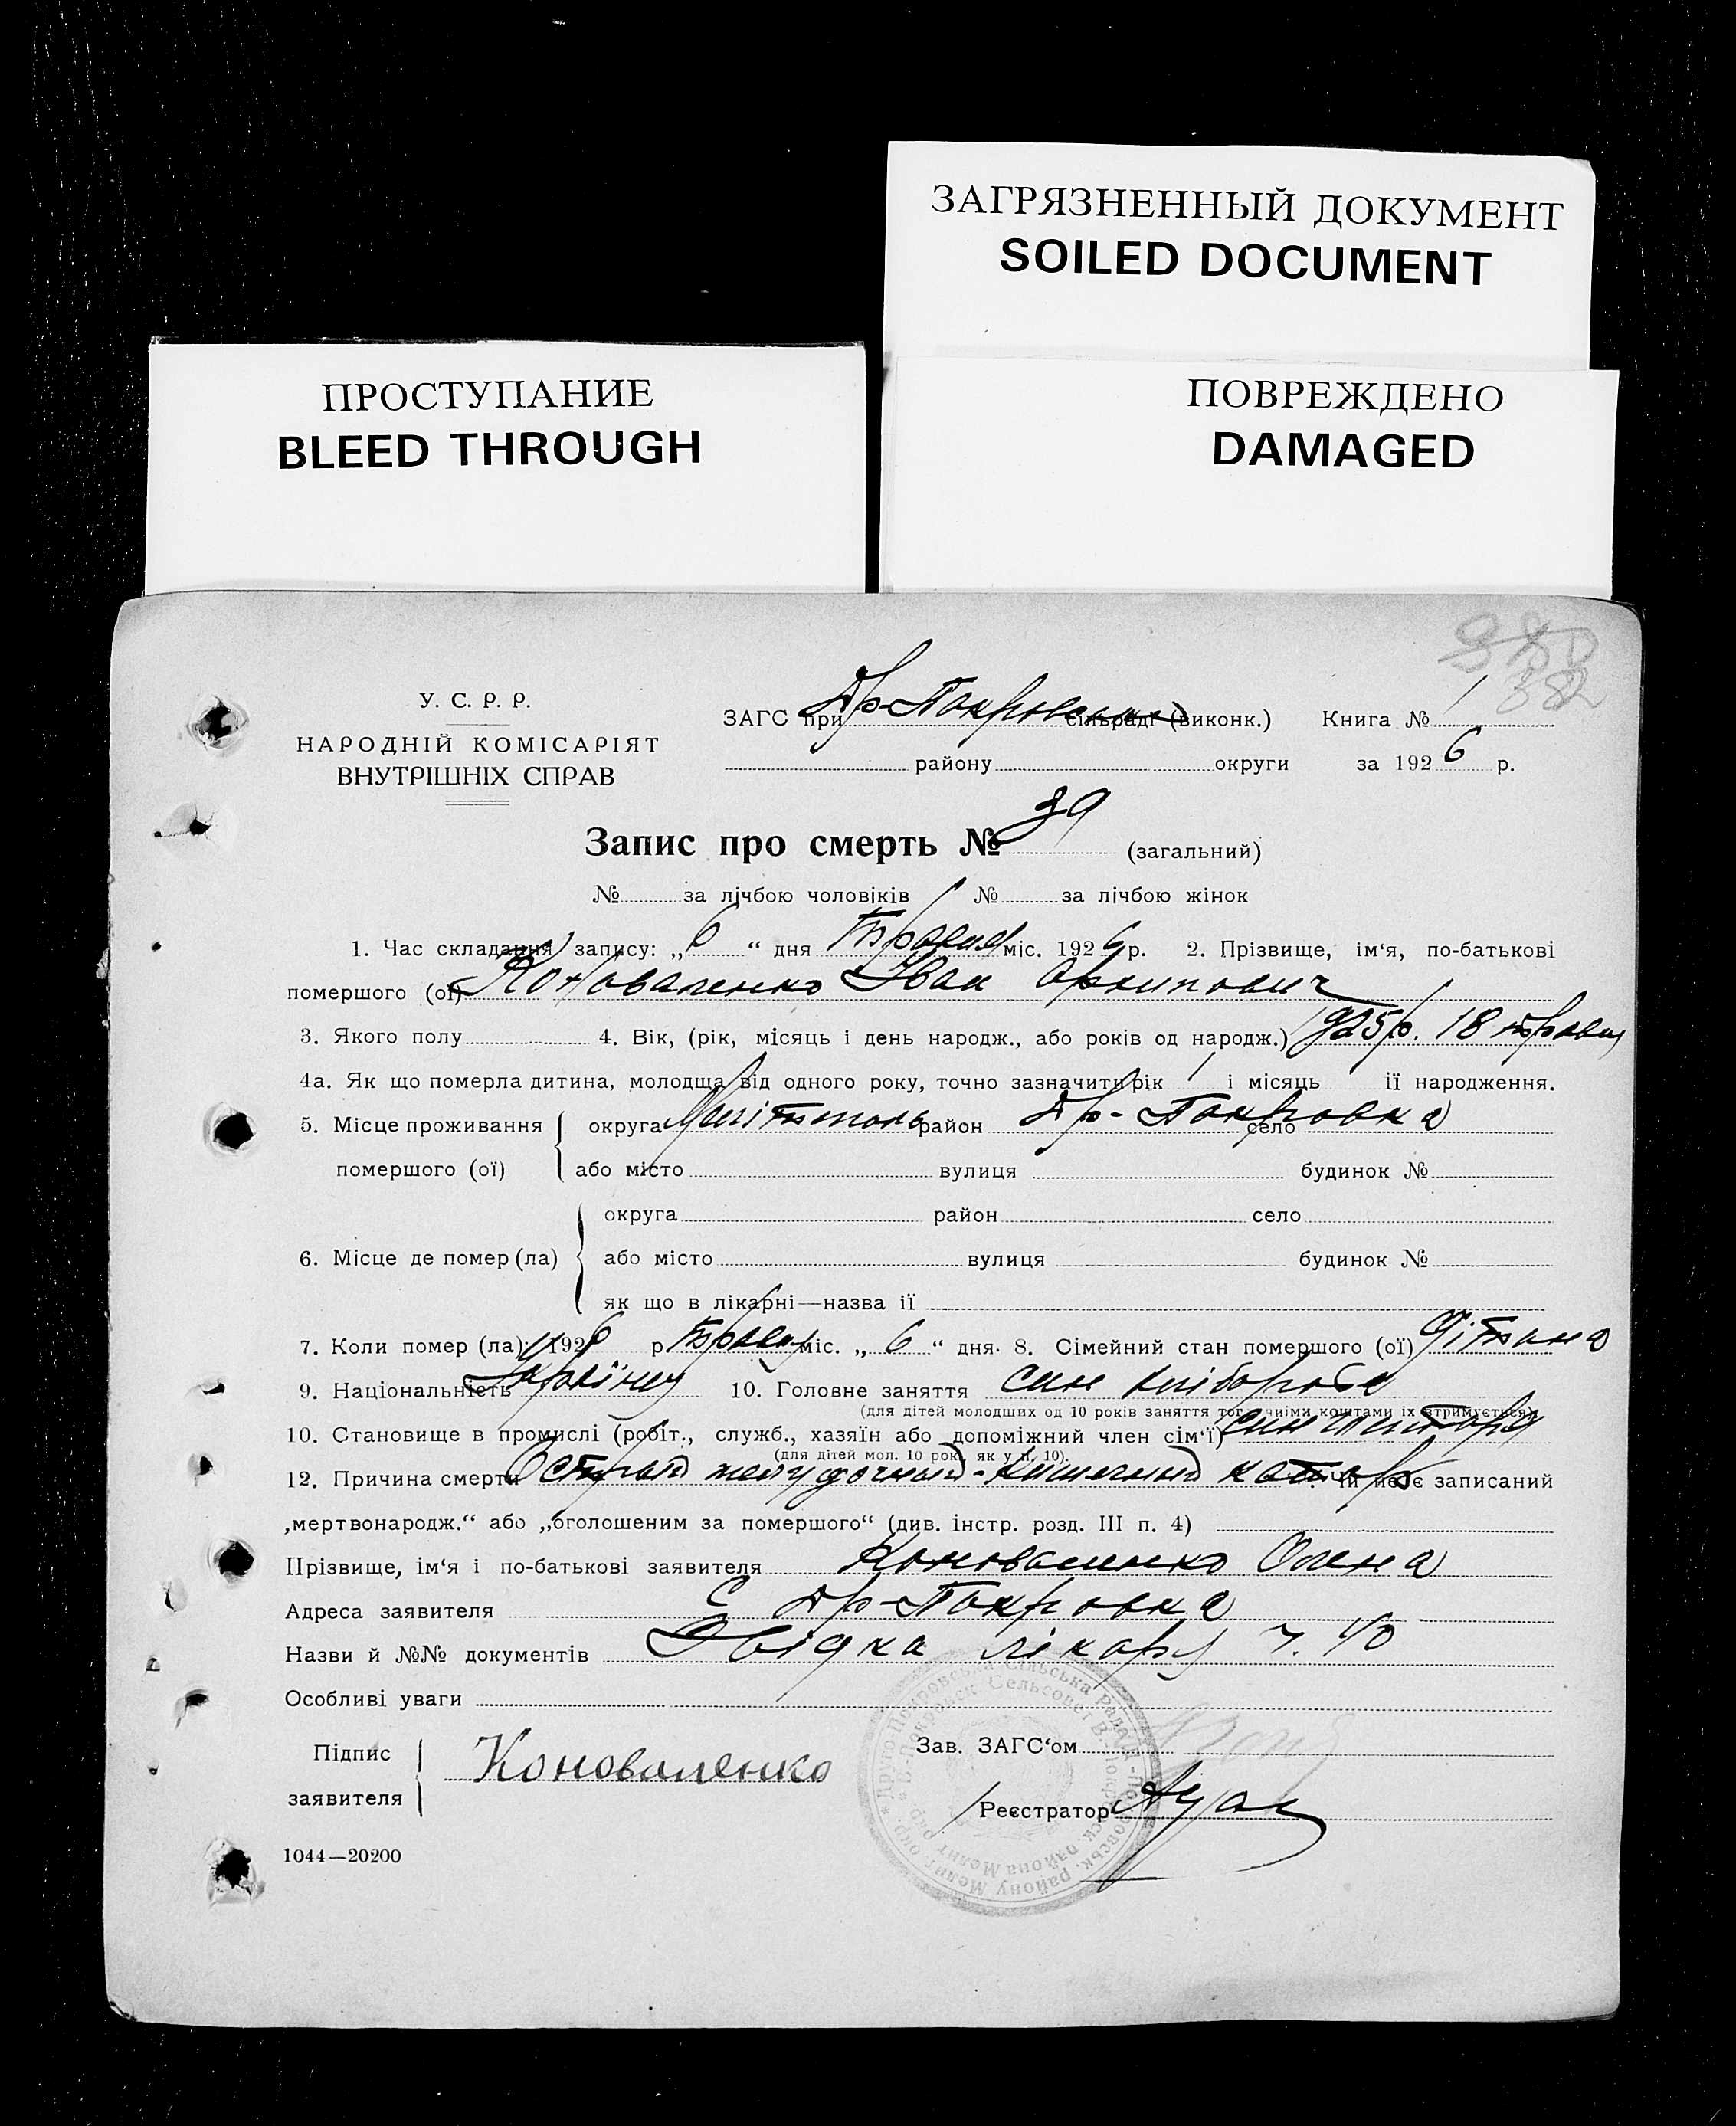 ЗАГРЯЗНЕННЫЙ ДОКУМЕНТ
SOILED DOCUMENT
ПРОСТУПАНИЕ
BLEED THROUGH
ПОВРЕЖДЕНО
DAMAGED
382
У. С. Р. Р.
НАРОДНІЙ КОМІСАРІЯТ
ВНУТРІШНІХ СПРАВ
ЗАГС при Др-Покровськ сільраді (виконк.) Книга № 1
району округи за 1926 р.
Запис про смерть № 39 (загальний)
№ за лічбою чоловіків № за лічбою жінок
1. Час складання запису: „6“ дня Травня міс. 1926 р. 2. Прізвище, ім‘я, по-батькові
помершого (ої) Коноваленко Іван Архипович
3. Якого полу 4. Вік, (рік, місяць і день народж., або років од народж.) 1925 р. 18 травня
4а. Як що померла дитина, молодща від одного року, точно зазначити рік 1 і місяць ії народження.
5. Місце проживання округа Мелітополь район Др-Покровка село
помершого (ої) або місто вулиця будинок №
округа район село
6. Місце де помер (ла) або місто вулиця будинок №
як що в лікарні—назва ії
7. Коли помер (ла): 1926 р Травня міс. „6“ дня. 8. Сімейний стан помершого (ої) дітина
9. Національність Україн 10. Головне заняття син хлібороба
(для дітей молодших од 10 років заняття тог чніми коштами іх втримується)
10. Становище в промислі (робіт., служб., хазяін або допоміжний член сім‘ї) син
(для дітей мол. 10 рок. як у п. 10).
12. Причина смерти Острый желудочный-кишечный катар Чи не є записаний
„мертвонародж.“ або „оголошеним за помершого“ (див. інстр. розд. III п. 4)
Прізвище, ім‘я і по-батькові заявителя Коноваленко Олена
Адреса заявителя С Др-Покровка
Назви й №№ документів Звідка лікару ч. 40
Особливі уваги
Підпис заявителя Коноваленко
Зав. ЗАГС‘ом
Реєстратор
1044—20200